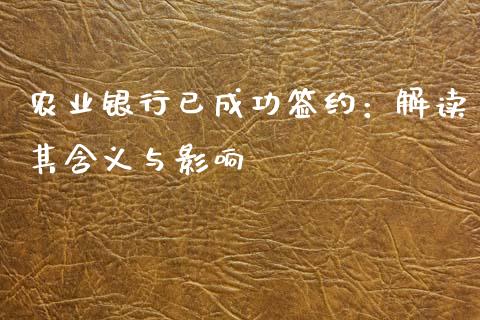 农业银行已成功签约：解读
其含义与影响